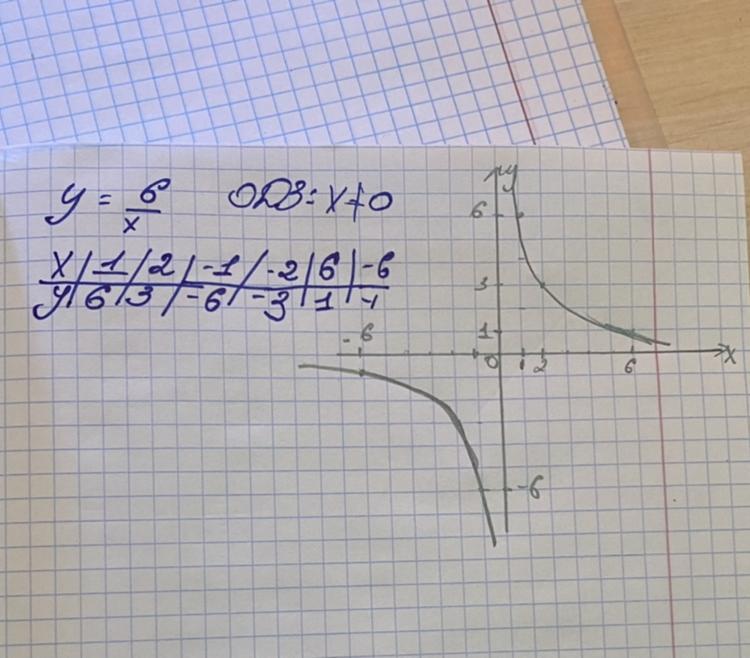 y = 6/x ОДЗ: x ≠ 0
x | 1 | 2 | -1 | -2 | 6 | -6
y | 6 | 3 | -6 | -3 | 1 | -1
y
6
3
1
-6
0 1 2 6 x
-6